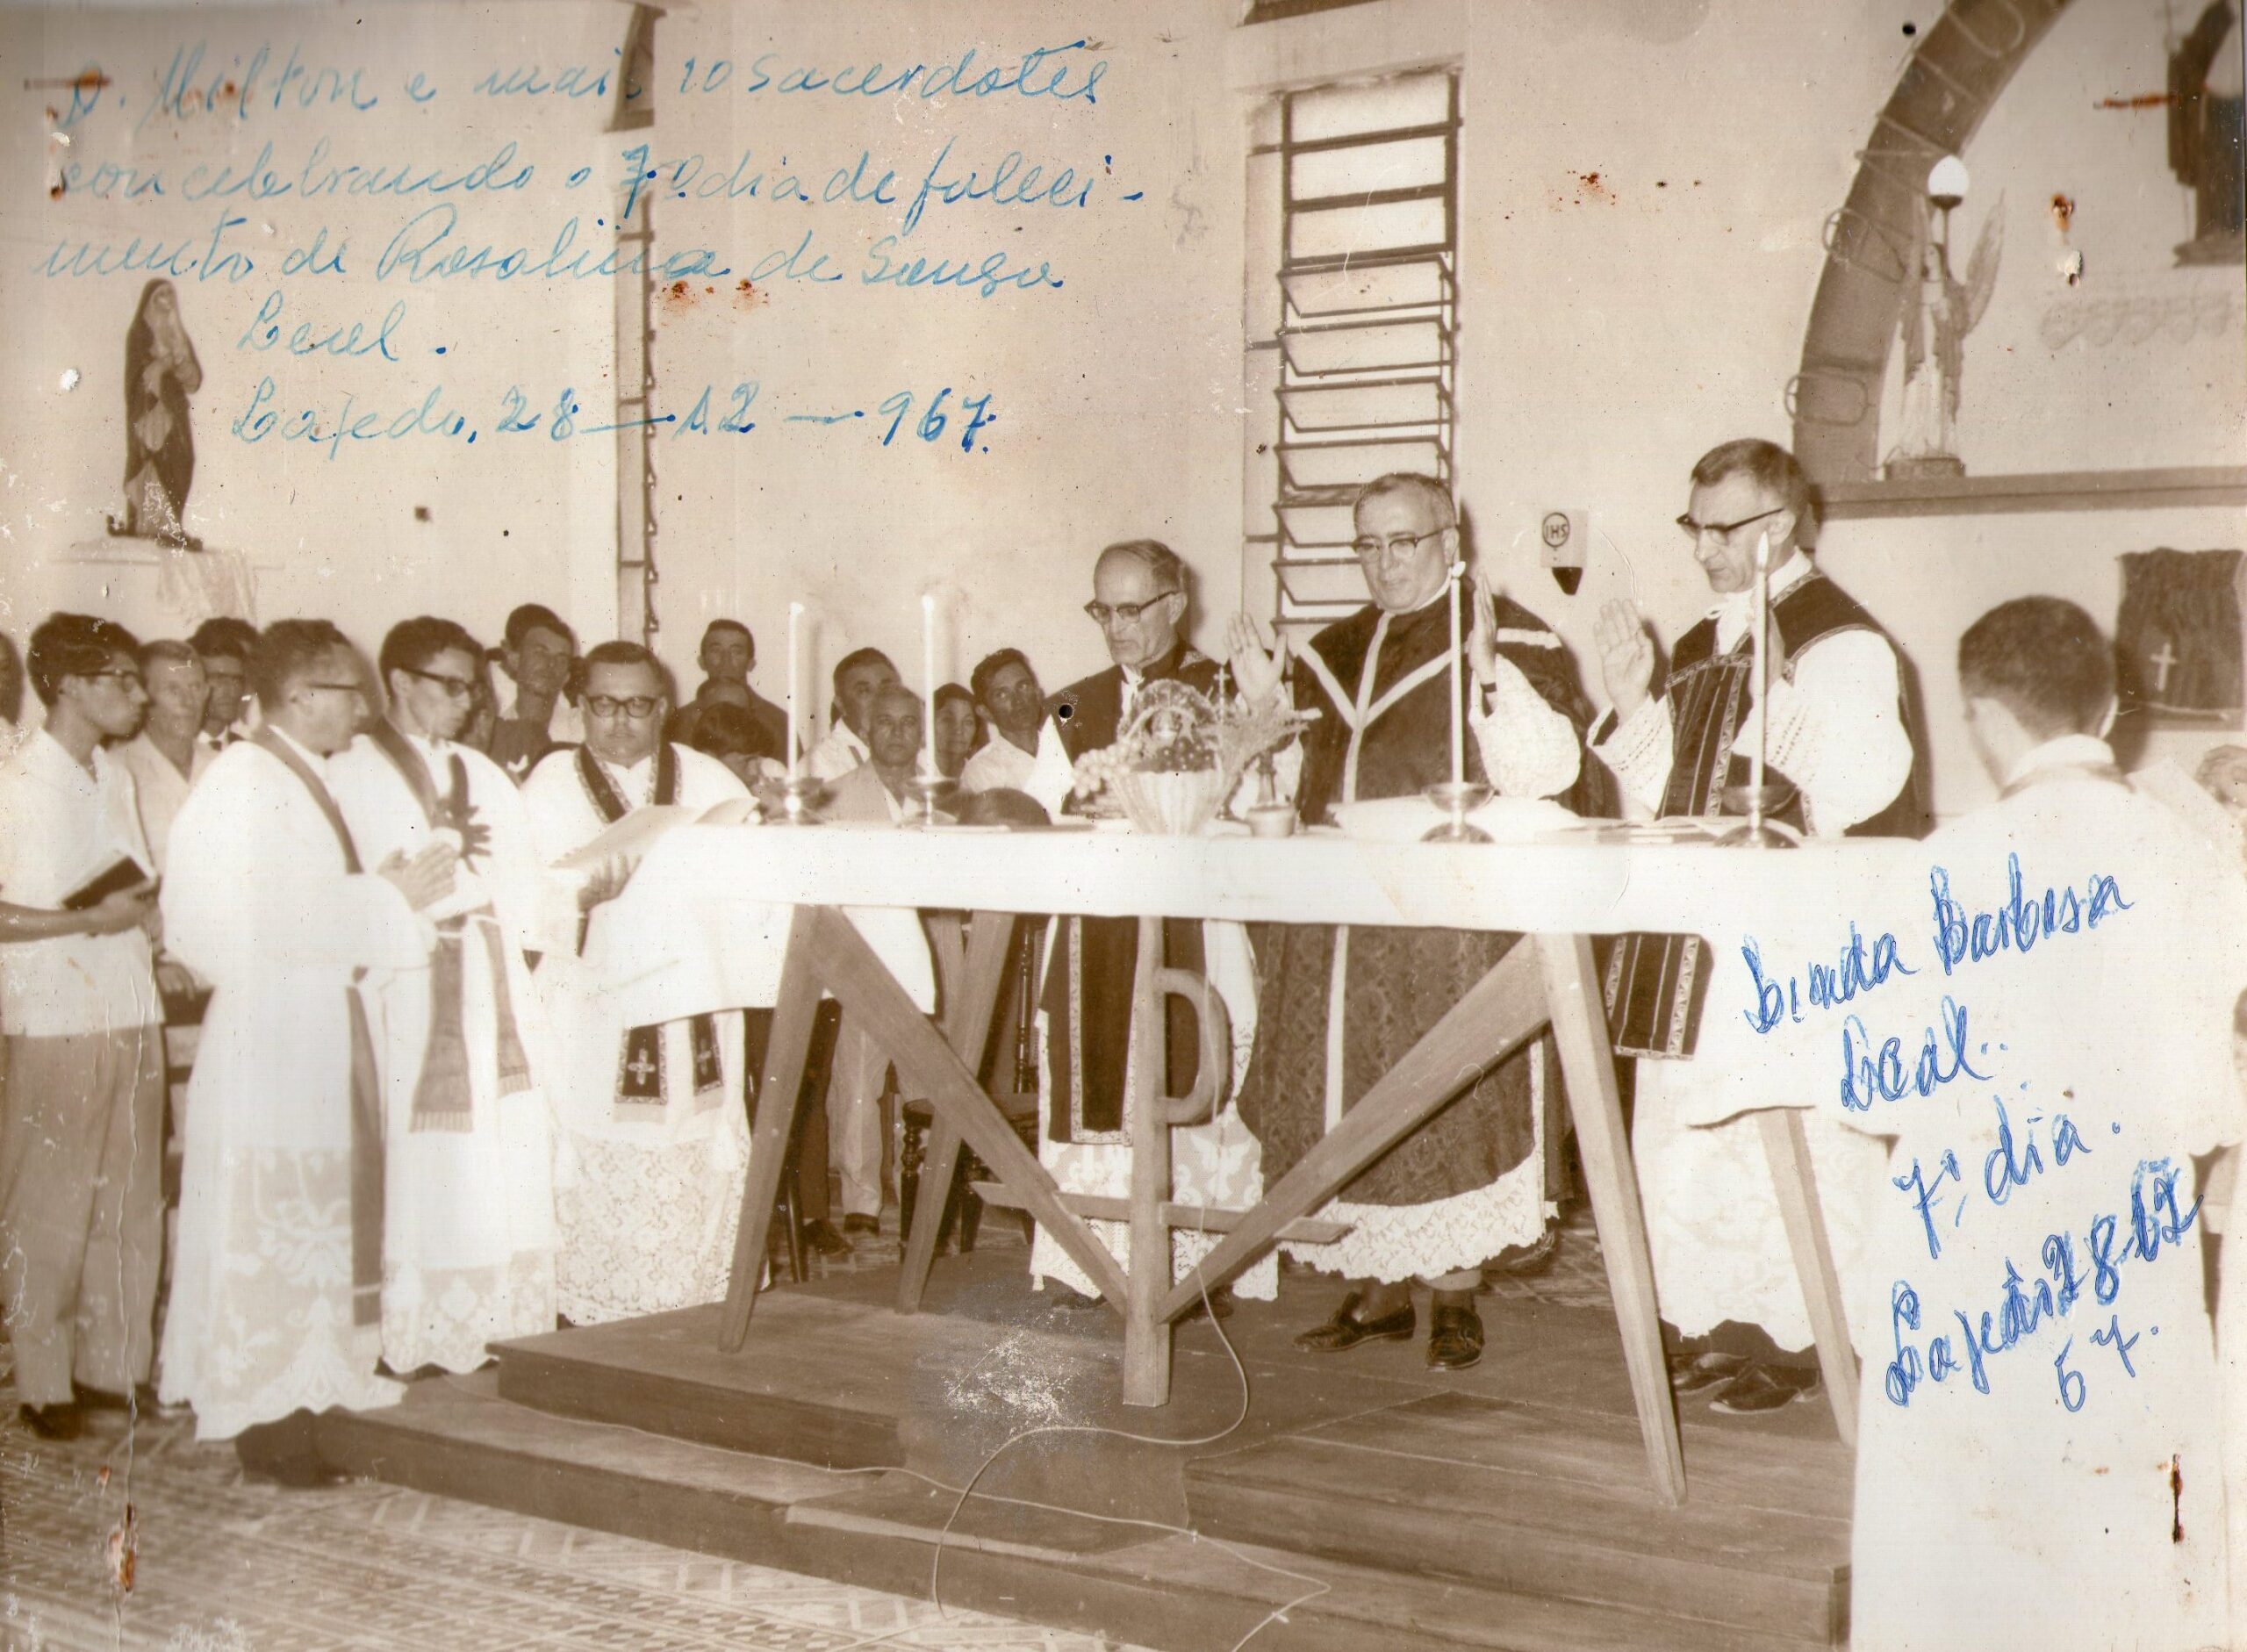 D. Milton e mais 10 Sacerdotes
concelebrando o 7º dia de faleci-
mento de Rosalina de Souza
Leal.
Lajedo, 28-12-967.
IHS
Linda Barbosa
Leal..
7º dia.
Lajedo 28-12
67.